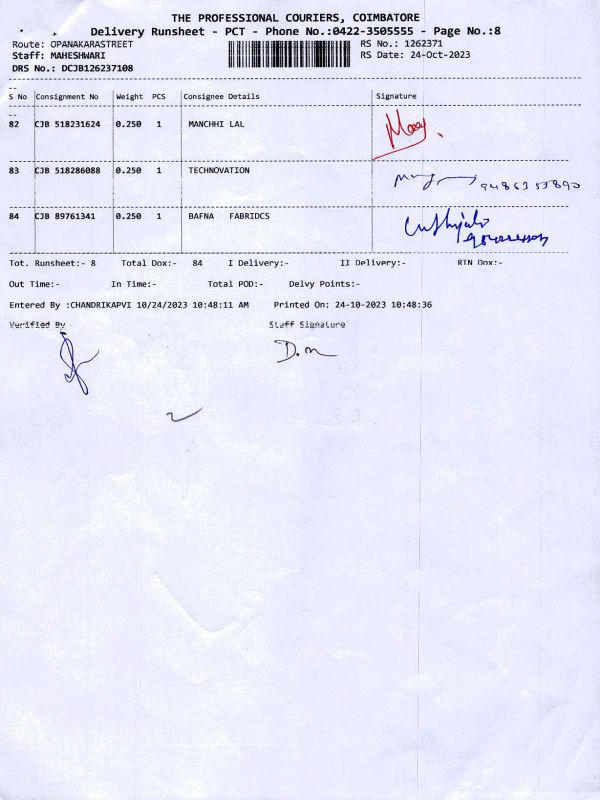 THE PROFESSIONAL COURIERS, COIMBATORE
Delivery Runsheet - PCT - Phone No.:0422-3505555 - Page No.:8
Route: OPANAKARASTREET RS No.: 1262371
Staff: MAHESHWARI RS Date: 24-Oct-2023
DRS No.: DCJB126237108
S No Consignment No Weight PCS Consignee Details Signature
82 CJB 518231624 0.250 1 MANCHHI LAL
83 CJB 518286088 0.250 1 TECHNOVATION
84 CJB 89761341 0.250 1 BAFNA FABRIDCS
Tot. Runsheet:- 8 Total Dox:- 84 I Delivery:- II Delivery:- RTN Dox:-
Out Time:- In Time:- Total POD:- Delvy Points:-
Entered By :CHANDRIKAPVI 10/24/2023 10:48:11 AM Printed On: 24-10-2023 10:48:36
Verified By Staff Signature
D.m